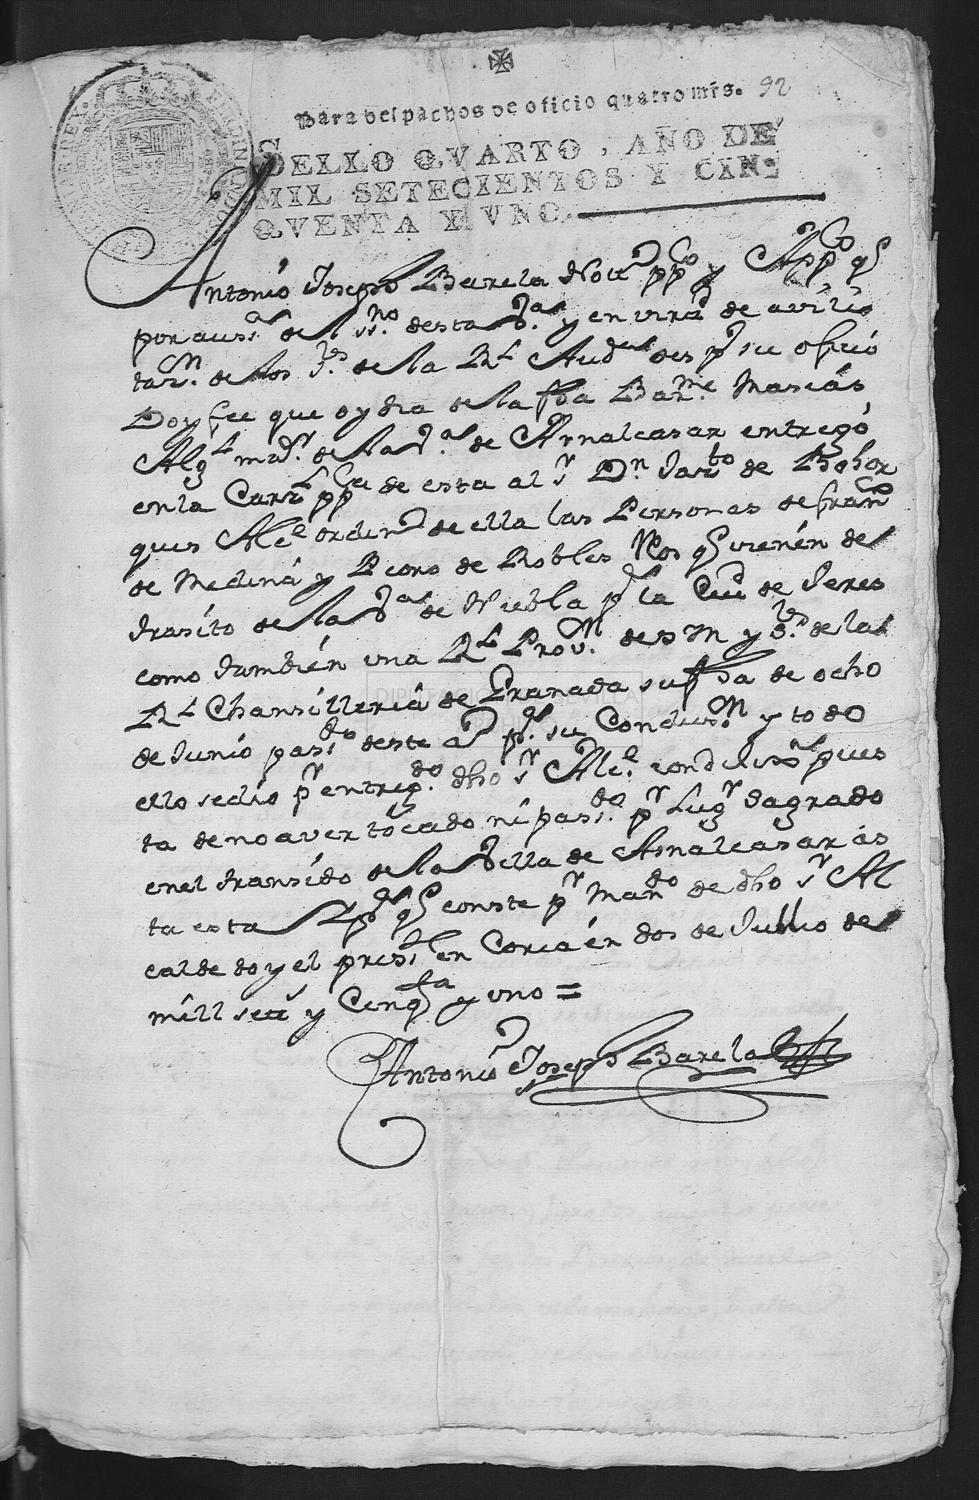 Para despachos de oficio quatro mrs. 92
SELLO QVARTO, AÑO DE
MIL SETECIENTOS Y CIN-
QVENTA Y VNO.
Antonio Joseph Barela Nottº ppco y Appco q
por aus.a de el ss.no desta V.a y en virtd de
tarn de los S.res de la Rl Aud.a por su ofizio
Doy fee que oy dia de la fha Barme Masias
Algl mr de la V.a de Arnalcasar entregó
en la Carzl ppca de esta al sr Dn Jazto de Bohor
ques Alce ordino de ella las Personas de franco
de Medina y Pedro de Robles Reos q vienen de
transito de la V.a de Niebla pa la Ciud de Jeres
como tambien una Rl Provn de S M y S.res de la
Rl Chansilleria de Granada su fha de ocho
de Junio pasdo deste año pa su Condusn y todo
ello se dio pr entregdo dho sr Alce con
ta de no aver tocado ni pasdo pr Lugr Sagrado
en el transido de la Villa de Asnalcasar as
ta esta y pa q conste pr mando de dho sr Al
calde doy el preste en Coria en dos de Jullio de
mill sett y Cinqta y uno =
Antonio Joseph Barela